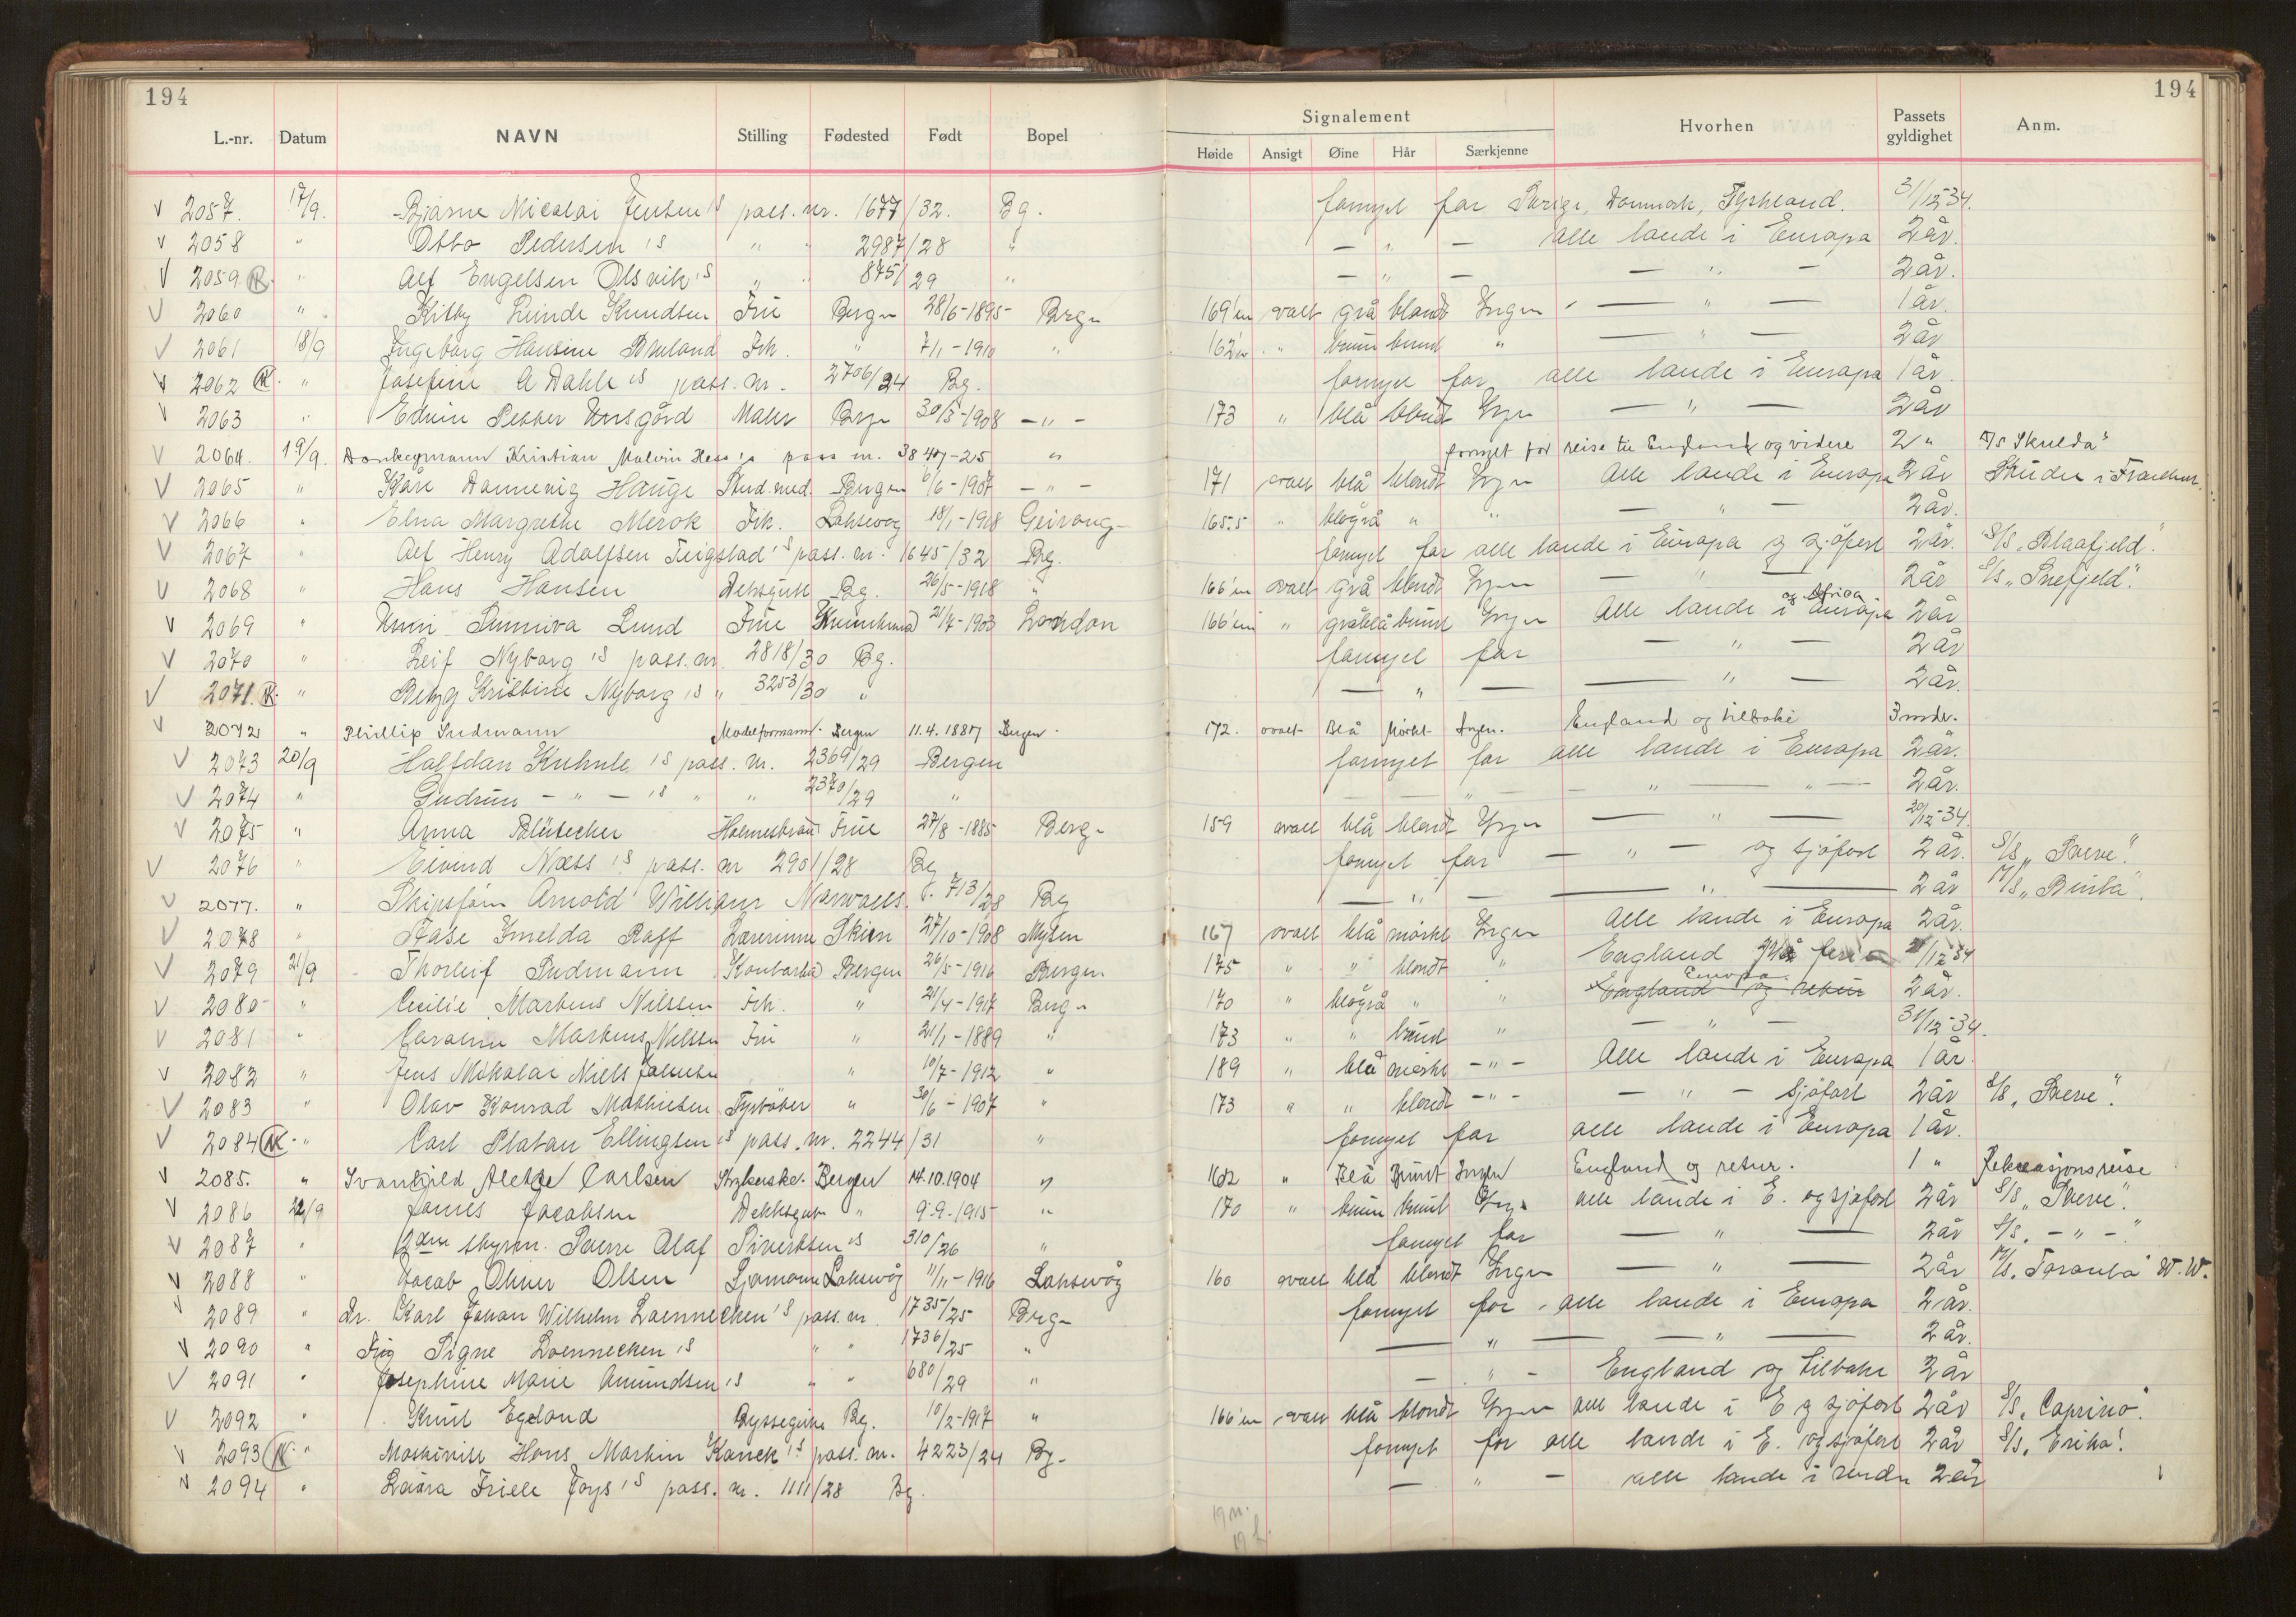 194 194
L.-nr. Datum NAVN Stilling Fødested Født Bopel Signalement Høide Ansigt Øine Hår Særkjenne Hvorhen Passets gyldighet Anm.
2057. 17/9. Bjarne Nicolai Jensen's pass. nr. 1677/32. Bg. fornyet for Sverige, Danmark, Tyskland. 31/12-34.
2058 " Otto Pedersen's " " 2987/28 " — " — alle lande i Europa 2 år.
2059 " Alf Engelsen Olsvik's " " 875/29 " — " — — " — 2 år.
2060 " Kitty Linde Knudsen Frue Bergen 28/6-1895 Bergen 169 cm ovalt grå blondt Ingen — " — 1 år.
2061 18/9 Ingeborg Hansine Frk. " 7/1-1910 " 162 cm " brun brunt " — " — 2 år
2062 " Josefine A Dahle's pass. nr. 2706/24 Bg. fornyet for alle lande i Europa 1 år.
2063 " Edvin Petter Maler Bergen 30/3-1908 — " — 173 " blå blondt Ingen — " — 2 år
2064. 19/9. Kristian Malvin Hess's pass nr. 3847-25 " fornyet for reise til England og videre 2 " D/S Skulda"
2065 " Kåre Dannevig Hauge Stud. med. Bergen 6/6-1907 — " — 171 ovalt blå blondt Ingen Alle lande i Europa 2 år
2066 " Elna Margrethe Merok Frk. Laksevåg 18/1-1918 Geirang 165.5 " blågrå " " — " — 2 år.
2067 " Alf Henry Adolfsen Teigstad's pass. nr. 1645/32 Bg. fornyet for alle lande i Europa og sjöfart 2 år. S/S „Blaafjeld".
2068 " Hans Hansen Dekksgutt Bg. 26/5-1918 " 166 cm ovalt grå blondt Ingen — " — 2 år S/S „Snefjeld".
2069 " Unni Sunniva Lund Frue 21/7-1903 London 166 cm " gråblå brunt Ingen Alle lande i Europa og Afrika 2 år
2070 " Leif Nyborg's pass. nr. 2818/30 Bg. fornyet for — " — 2 år
2071. " Betzy Kristine Nyborg's " 3253/30 " — " — — " — 2 år.
2072 " Phillip Sudmann Modelformann. Bergen 11.4.1887 Bergen. 172. ovalt Blå Mörkt Ingen. England og tilbake 3 mdr.
2073 20/9 Halfdan Kuhnle's pass. nr. 2369/29 Bergen fornyet for alle lande i Europa 2 år.
2074 " Gudrun — " — 's " " 2370/29 " — " — — " — " — 2 år.
2075 " Anna Blütecher Frue 27/8-1885 Bergen 159 ovalt blå blondt Ingen — " — 20/12-34.
2076 " Eivind Næss's pass. nr 2901/28 Bg fornyet for — " — og sjöfart 2 år. S/S „Sverre".
2077. " Skipsförer Arnold William 713/28 Bg — " — — " — 2 år M/S „Binta".
2078 " Aase Imelda Raff Lærerinne Skien 27/10-1908 Mysen 167 ovalt blå mörkt Ingen Alle lande i Europa 2 år.
2079 21/9 Thorleif Sudmann Kontorist Bergen 26/5-1916 Bergen 175 " " blondt " England 31/12-34
2080 " Cecilie Martens Nilssen Frk. " 21/4-1917 Bergen 170 " blågrå " " England og retur Europa. 2 år.
2081 " Martens Nilssen Fru " 21/1-1889 " 173 " " brunt " — " — 31/12-34.
2082 " Jens Mikolai Niels " 10/7-1912 " 189 " blå mörkt — " — Alle lande i Europa 1 år.
2083 " Olav Konrad Mathiesen Fyrböter " 30/6-1907 " 173 " " blondt — " — — " — sjöfart 2 år S/S „Sverre".
2084 " Carl Platau Ellingsen's pass. nr. 2244/31 " fornyet for alle lande i Europa 1 år.
2085. " Svanhild Aletle Carlsen Strykerske. Bergen 14.10.1904 " 162 " Blå Brunt Ingen England og retur. 1 " Rekreasjonsreise
2086 22/9 James Jacobsen Dekksgutt " 9.9.-1915 " 170 " brun brunt Ingen alle lande i E. og sjöfart 2 år S/S „Sverre".
2087 " 2den styrm. Sverre Olaf Sivertsen's 310/26 " fornyet for — " — 2 år S/S. — " —"
2088 " Jacob Olsen Sjömann Laksevåg 11/11-1916 Laksevåg 160 ovalt blå blondt Ingen — " — 2 år M/S. Taranta" W.W.
2089 " Dr. Karl Johan Wilhelm Loennecken's pass. nr. 1735/25 Bergen fornyet for alle lande i Europa 2 år.
2090 " Signe Loennecken's " " 1736/25 " — " — — " — 2 år.
2091 " Josephine Marie Amundsen's " " 680/29 " — " — England og tilbake 2 år
2092 " Knut Egeland Byssegutt Bg. 10/2-1917 " 166 cm ovalt blå blondt Ingen alle lande i E og sjöfart 2 år S/S. Caprino".
2093 " Maskinist Hans Martin Kanck's pass. nr. 4223/24 Bg. fornyet for alle lande i E. og sjöfart 2 år S/S. Erika".
2094 " Laura Friele Joys's pass. nr. 1111/28 Bg. — " — alle lande i verden 2 år
19 m.
19 k.